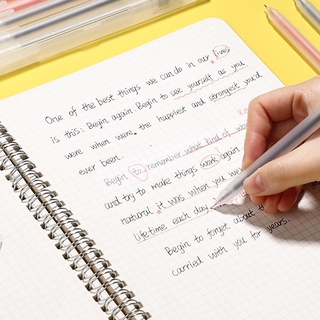 One of the best things we can do in our lives
is this: Begin again Begin to see yourself as you
were when were the happiest and strongest you'd
ever been.
Begin to remember what kind of
and try to make things work again
natural it was when you was
lifetime each day
Begin to forget about t
carried with you for years.